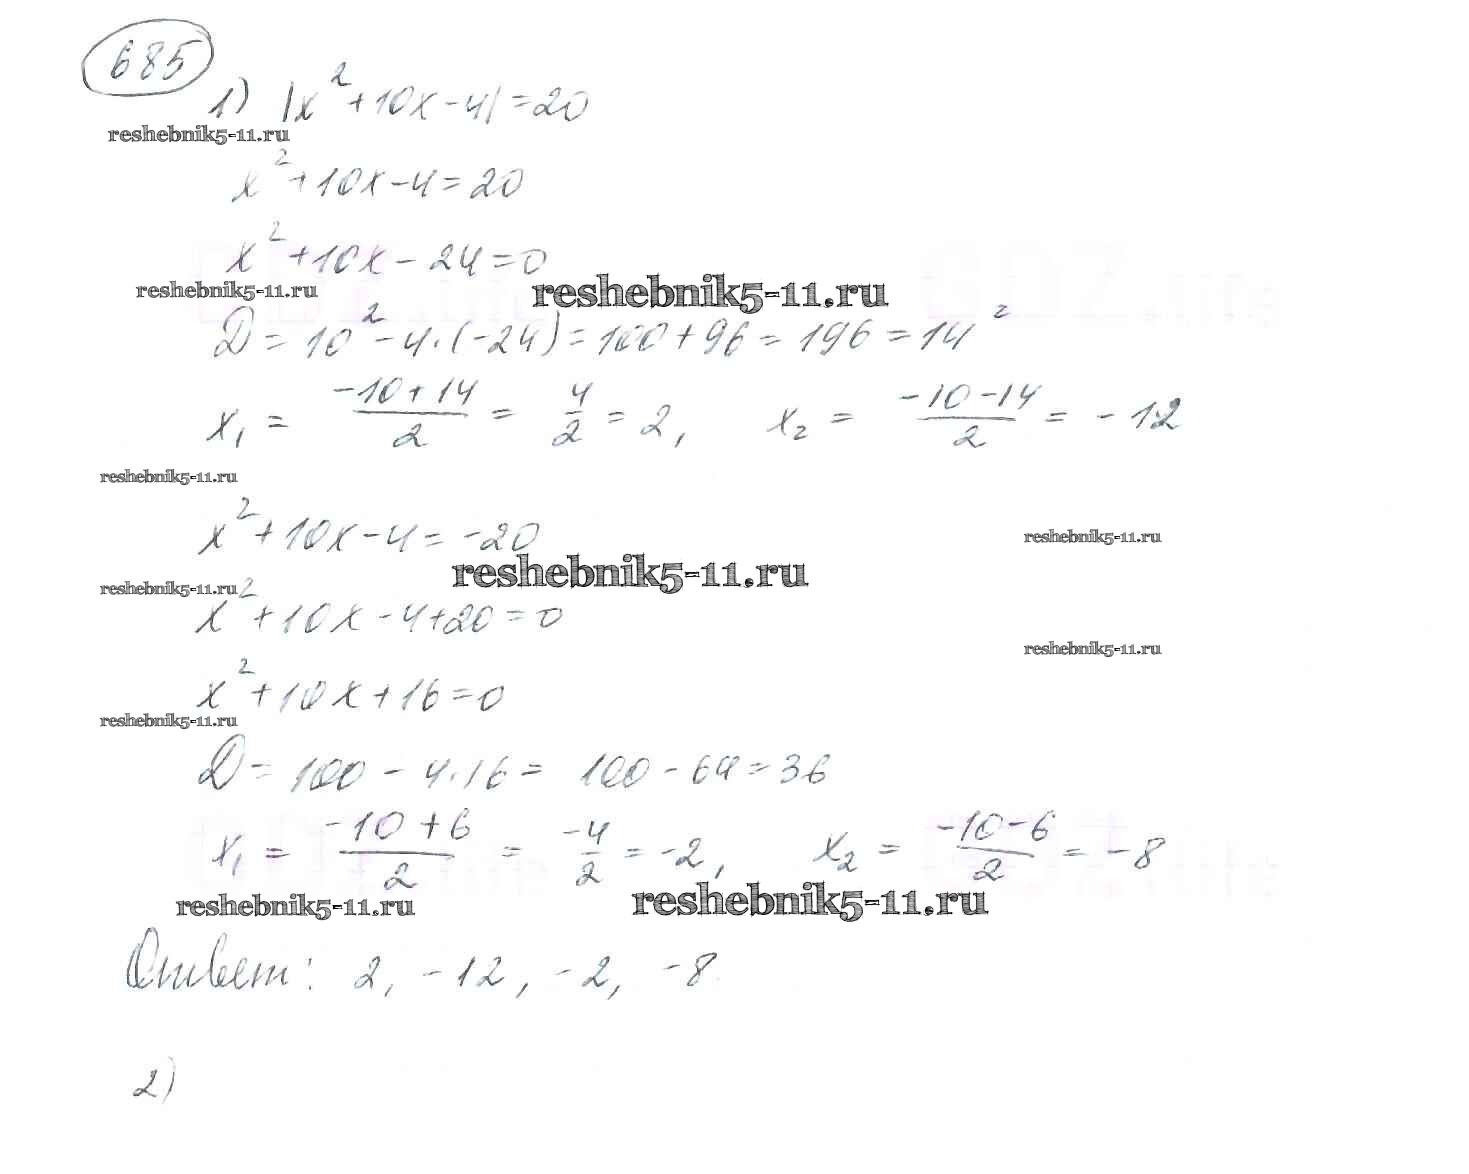 685
1) |x² + 10x - 4| = 20
reshebnik5-11.ru
x² + 10x - 4 = 20
x² + 10x - 24 = 0
reshebnik5-11.ru reshebnik5-11.ru
D = 10² - 4·(-24) = 100 + 96 = 196 = 14²
x₁ = (-10 + 14)/2 = 4/2 = 2, x₂ = (-10 - 14)/2 = -12
reshebnik5-11.ru
x² + 10x - 4 = -20
reshebnik5-11.ru
reshebnik5-11.ru
reshebnik5-11.ru
x² + 10x - 4 + 20 = 0
reshebnik5-11.ru
x² + 10x + 16 = 0
reshebnik5-11.ru
D = 100 - 4·16 = 100 - 64 = 36
x₁ = (-10 + 6)/2 = -4/2 = -2, x₂ = (-10 - 6)/2 = -8
reshebnik5-11.ru reshebnik5-11.ru
Ответ: 2, -12, -2, -8
2)